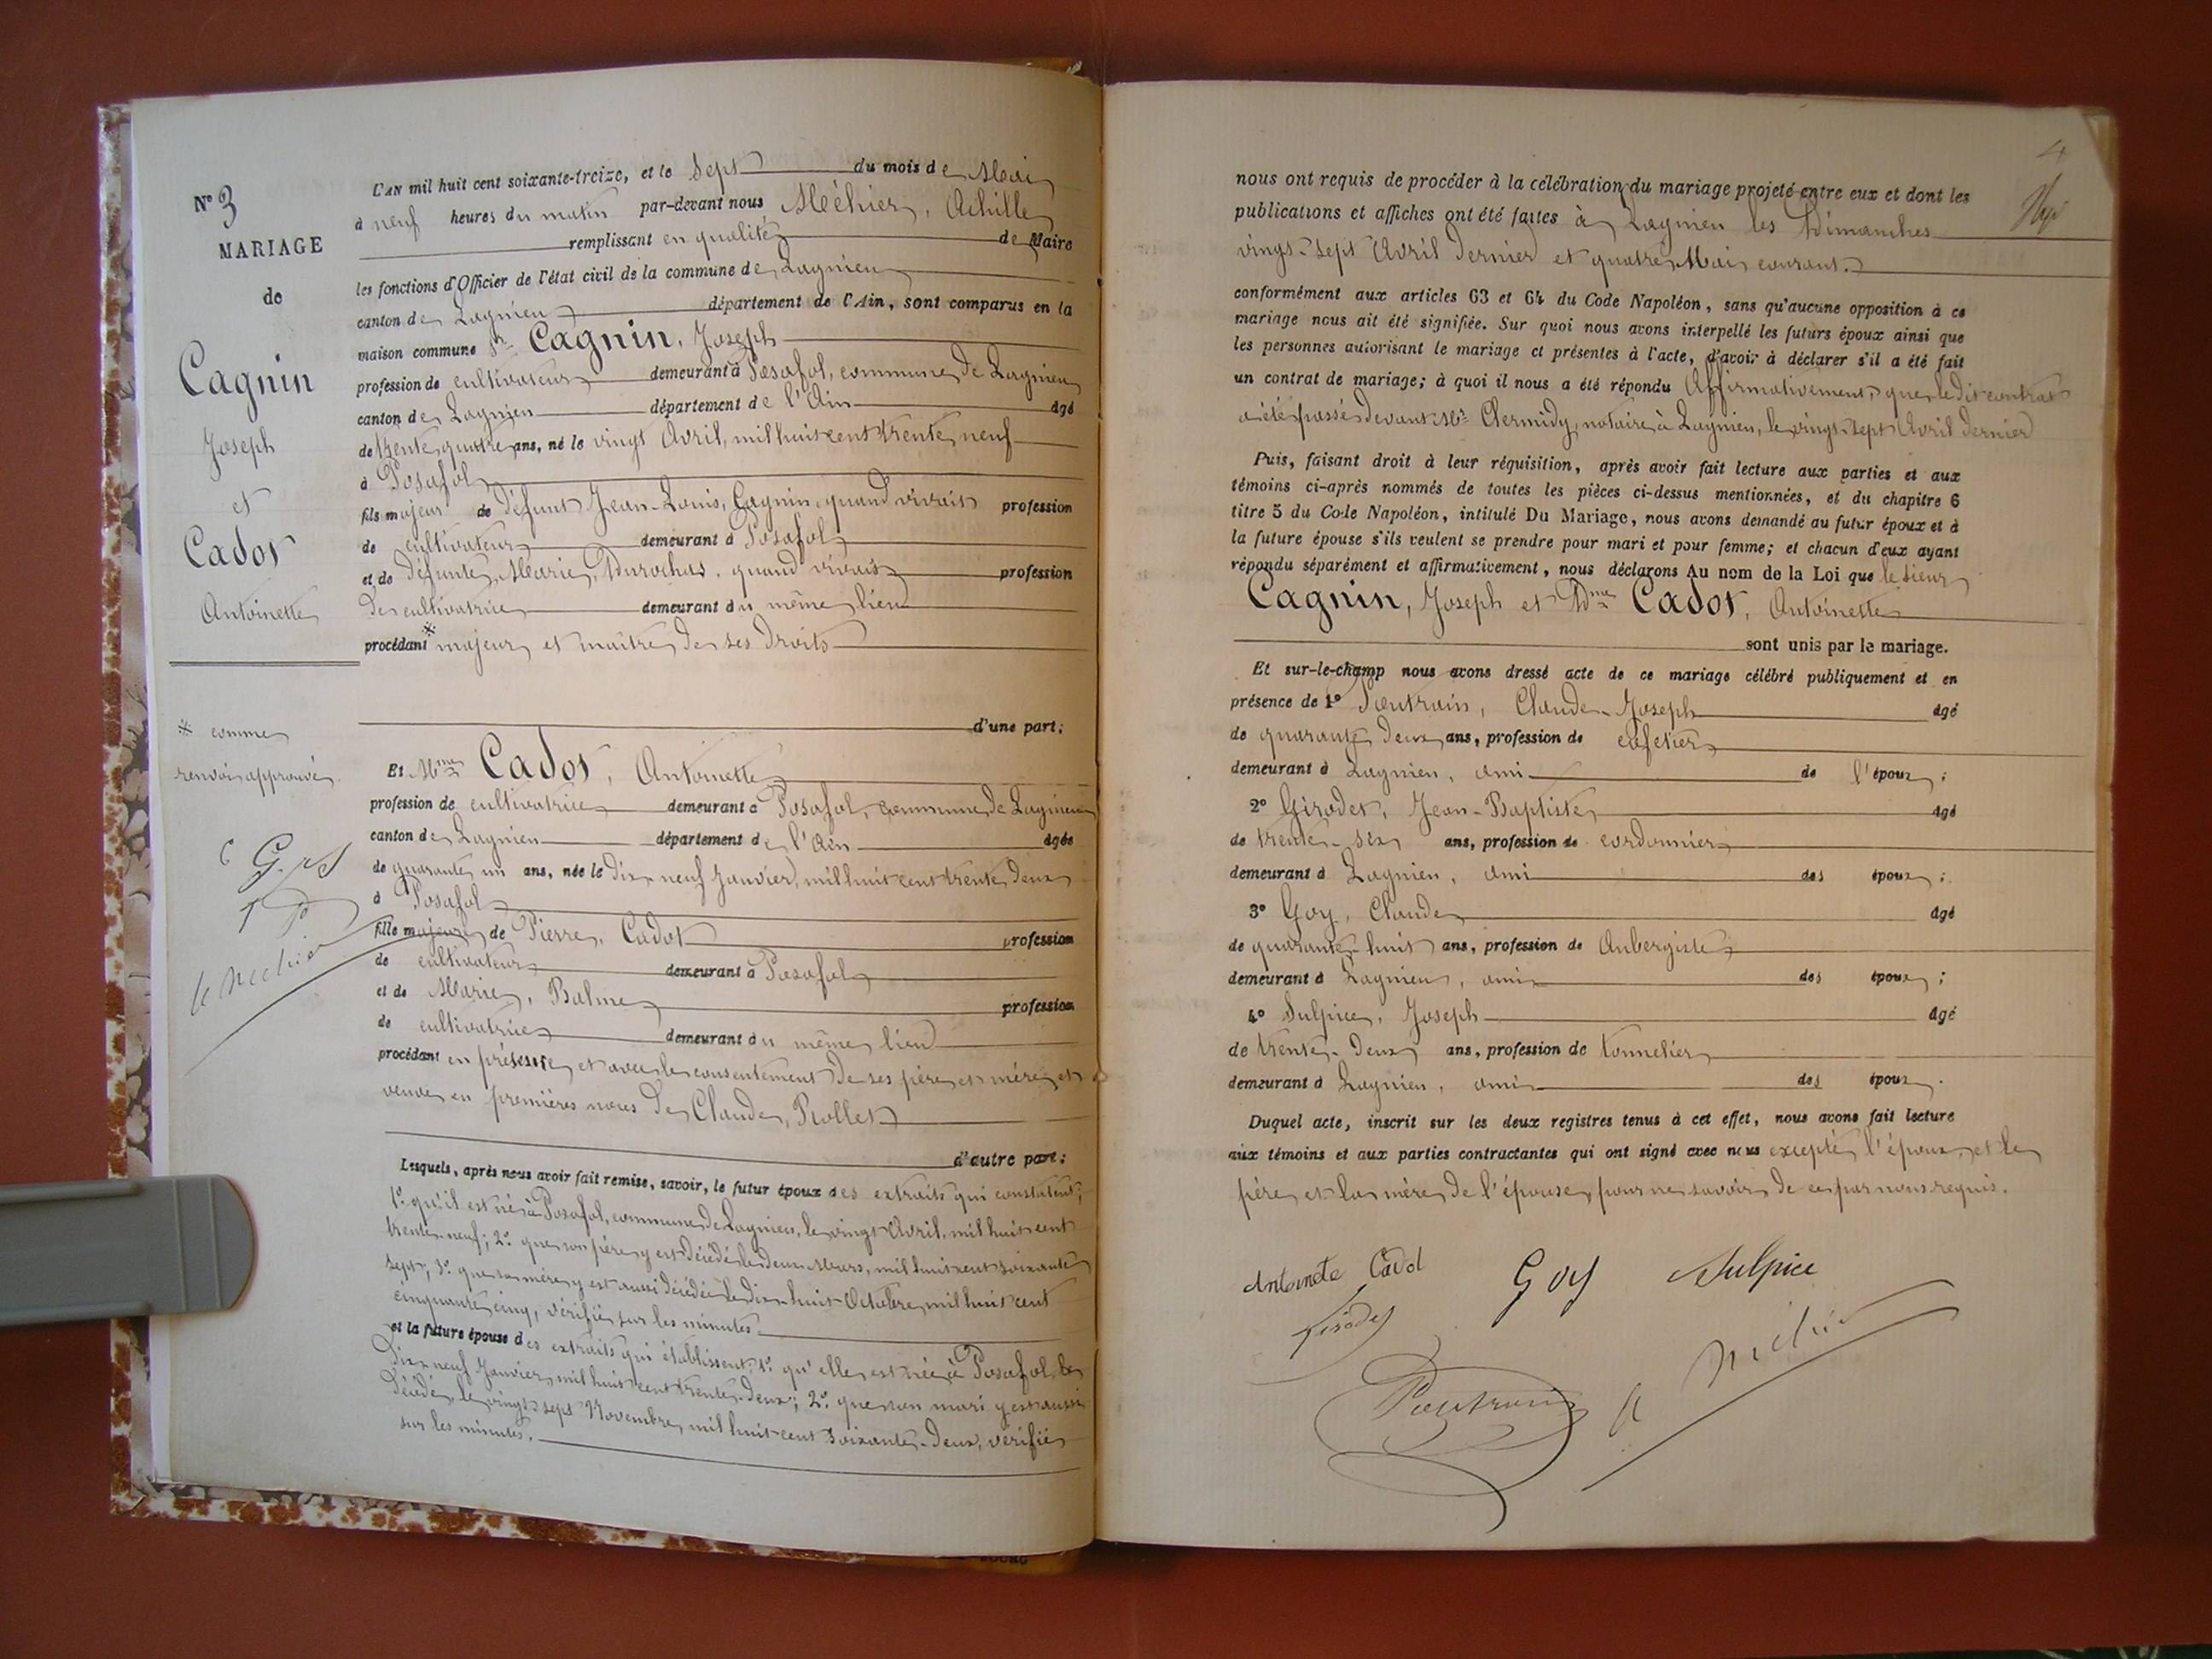 N° 3
MARIAGE
de
Cagnin
Joseph
et
Cadot
Antoinette
* comme
renvoi approuvé.
L'AN mil huit cent soixante-treize, et le Sept du mois de Mai
à neuf heures du matin par-devant nous Méhier, Achille
remplissant en qualité de Maire
les fonctions d'Officier de l'état civil de la commune de Lagnieu
canton de Lagnieu département de l'Ain, sont comparus en la
maison commune Sr Cagnin, Joseph
profession de cultivateur demeurant à Posafol, commune de Lagnieu
canton de Lagnieu département de l'Ain âgé
de trente quatre ans, né le vingt Avril, mil huit cent trente neuf
à Posafol
fils majeur de défunt Jean-Louis, Cagnin, quand vivait profession
de cultivateur demeurant à Posafol
et de défunte, Marie, Durochat, quand vivait profession
de cultivatrice demeurant du même lieu
procédant * majeur et maître de ses droits
d'une part;
Et Mme Cadot, Antoinette
profession de cultivatrice demeurant à Posafol, commune de Lagnieu
canton de Lagnieu département de l'Ain âgée
de quarante un ans, née le dix neuf Janvier, mil huit cent trente deux
à Posafol
fille majeure de Pierre, Cadot profession
de cultivateur demeurant à Posafol
et de Marie, Balme profession
de cultivatrice demeurant du même lieu
procédant en présence et avec le consentement de ses père et mère et
veuve en premières noces de Claude, Rollet
d'autre part;
Lesquels, après nous avoir fait remise, savoir, le futur époux des extraits qui constatent;
1° qu'il est né à Posafol, commune de Lagnieu, le vingt Avril, mil huit cent
trente-neuf; 2° que son père y est décédé le deux Mars, mil huit cent soixante
sept; 3° que sa mère y est aussi décédée le dix-huit Octobre, mil huit cent
cinquante cinq, vérifié sur les minutes.
et la future épouse des extraits qui établissent, 1° qu'elle est née à Posafol, le
dix-neuf Janvier, mil huit cent trente-deux; 2° que son mari y est aussi
décédé, le vingt-sept Novembre, mil huit cent soixante-deux, vérifié
sur les minutes.
4
nous ont requis de procéder à la célébration du mariage projeté entre eux et dont les
publications et affiches ont été faites à Lagnieu les Dimanches
vingt-sept Avril dernier et quatre Mai courant.
conformément aux articles 63 et 64 du Code Napoléon, sans qu'aucune opposition à ce
mariage nous ait été signifiée. Sur quoi nous avons interpellé les futurs époux ainsi que
les personnes autorisant le mariage et présentes à l'acte, d'avoir à déclarer s'il a été fait
un contrat de mariage; à quoi il nous a été répondu Affirmativement, que le dit contrat
a été passé devant Me Chermidy, notaire à Lagnieu, le vingt-sept Avril dernier
Puis, faisant droit à leur réquisition, après avoir fait lecture aux parties et aux
témoins ci-après nommés de toutes les pièces ci-dessus mentionnées, et du chapitre 6
titre 5 du Code Napoléon, intitulé Du Mariage, nous avons demandé au futur époux et à
la future épouse s'ils veulent se prendre pour mari et pour femme; et chacun d'eux ayant
répondu séparément et affirmativement, nous déclarons Au nom de la Loi que le sieur
Cagnin, Joseph et Dme Cadot, Antoinette
sont unis par le mariage.
Et sur-le-champ nous avons dressé acte de ce mariage célébré publiquement et en
présence de 1° Poutrain, Claude-Joseph âgé
de quarante deux ans, profession de cafetier
demeurant à Lagnieu, ami de l'époux;
2° Girodet, Jean-Baptiste âgé
de trente-six ans, profession de cordonnier
demeurant à Lagnieu, ami des époux;
3° Goy, Claude âgé
de quarante-huit ans, profession de Aubergiste
demeurant à Lagnieu, ami des époux;
4° Sulpice, Joseph âgé
de trente-deux ans, profession de tonnelier
demeurant à Lagnieu, ami des époux.
Duquel acte, inscrit sur les deux registres tenus à cet effet, nous avons fait lecture
aux témoins et aux parties contractantes qui ont signé avec nous excepté l'époux et le
père et la mère de l'épouse, pour ne savoir de ce par nous requis.
Antoinete Cadot Goy Sulpice
Girodet
Poutrain A Méhier